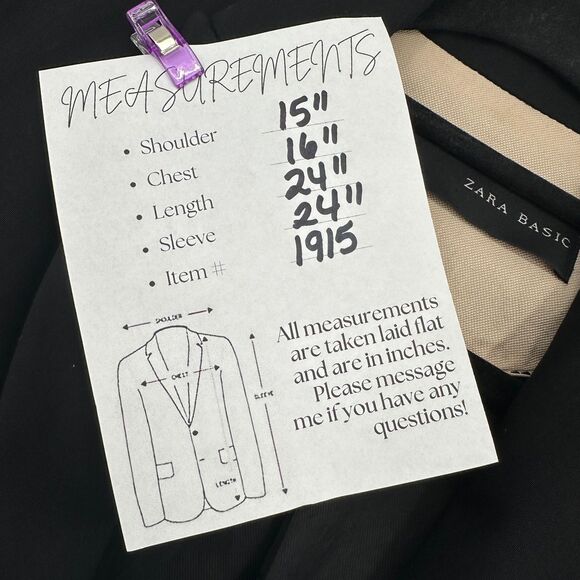 MEASUREMENTS
• Shoulder 15"
• Chest 16"
• Length 24"
• Sleeve 24"
• Item # 1915
All measurements
are taken laid flat
and are in inches.
Please message
me if you have any
questions!
SHOULDER
CHEST
SLEEVE
LENGTH
ZARA BASIC